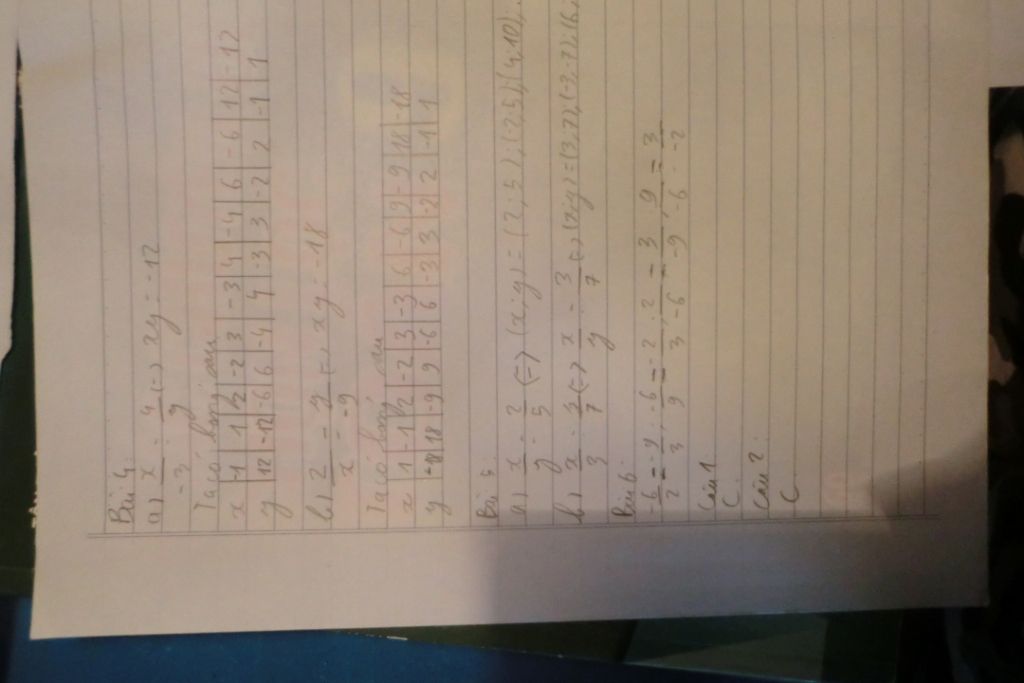 Bài 4.
a) x/-3 = 4/y (=) xy = -12
Ta có bảng sau
x | -1 | 1 | 2 | -2 | 3 | -3 | 4 | -4 | 6 | -6 | 12 | -12
y | 12 | -12 | -6 | 6 | -4 | 4 | -3 | 3 | -2 | 2 | -1 | 1
b) 2/x = y/-9 (=) xy = -18
Ta có bảng sau
x | 1 | -1 | 2 | -2 | 3 | -3 | 6 | -6 | 9 | -9 | 18 | -18
y | -18 | 18 | -9 | 9 | -6 | 6 | -3 | 3 | -2 | 2 | -1 | 1
Bài 5.
a) x/y = 2/5 (=) (x;y) = (2;5); (-2;-5); (4;10);
b) x/3 = y/7 (=) x/y = 3/7 (=) (x;y) = (3;7); (-3;-7); (6;
Bài 6.
Câu 1.
C.
Câu 2.
C